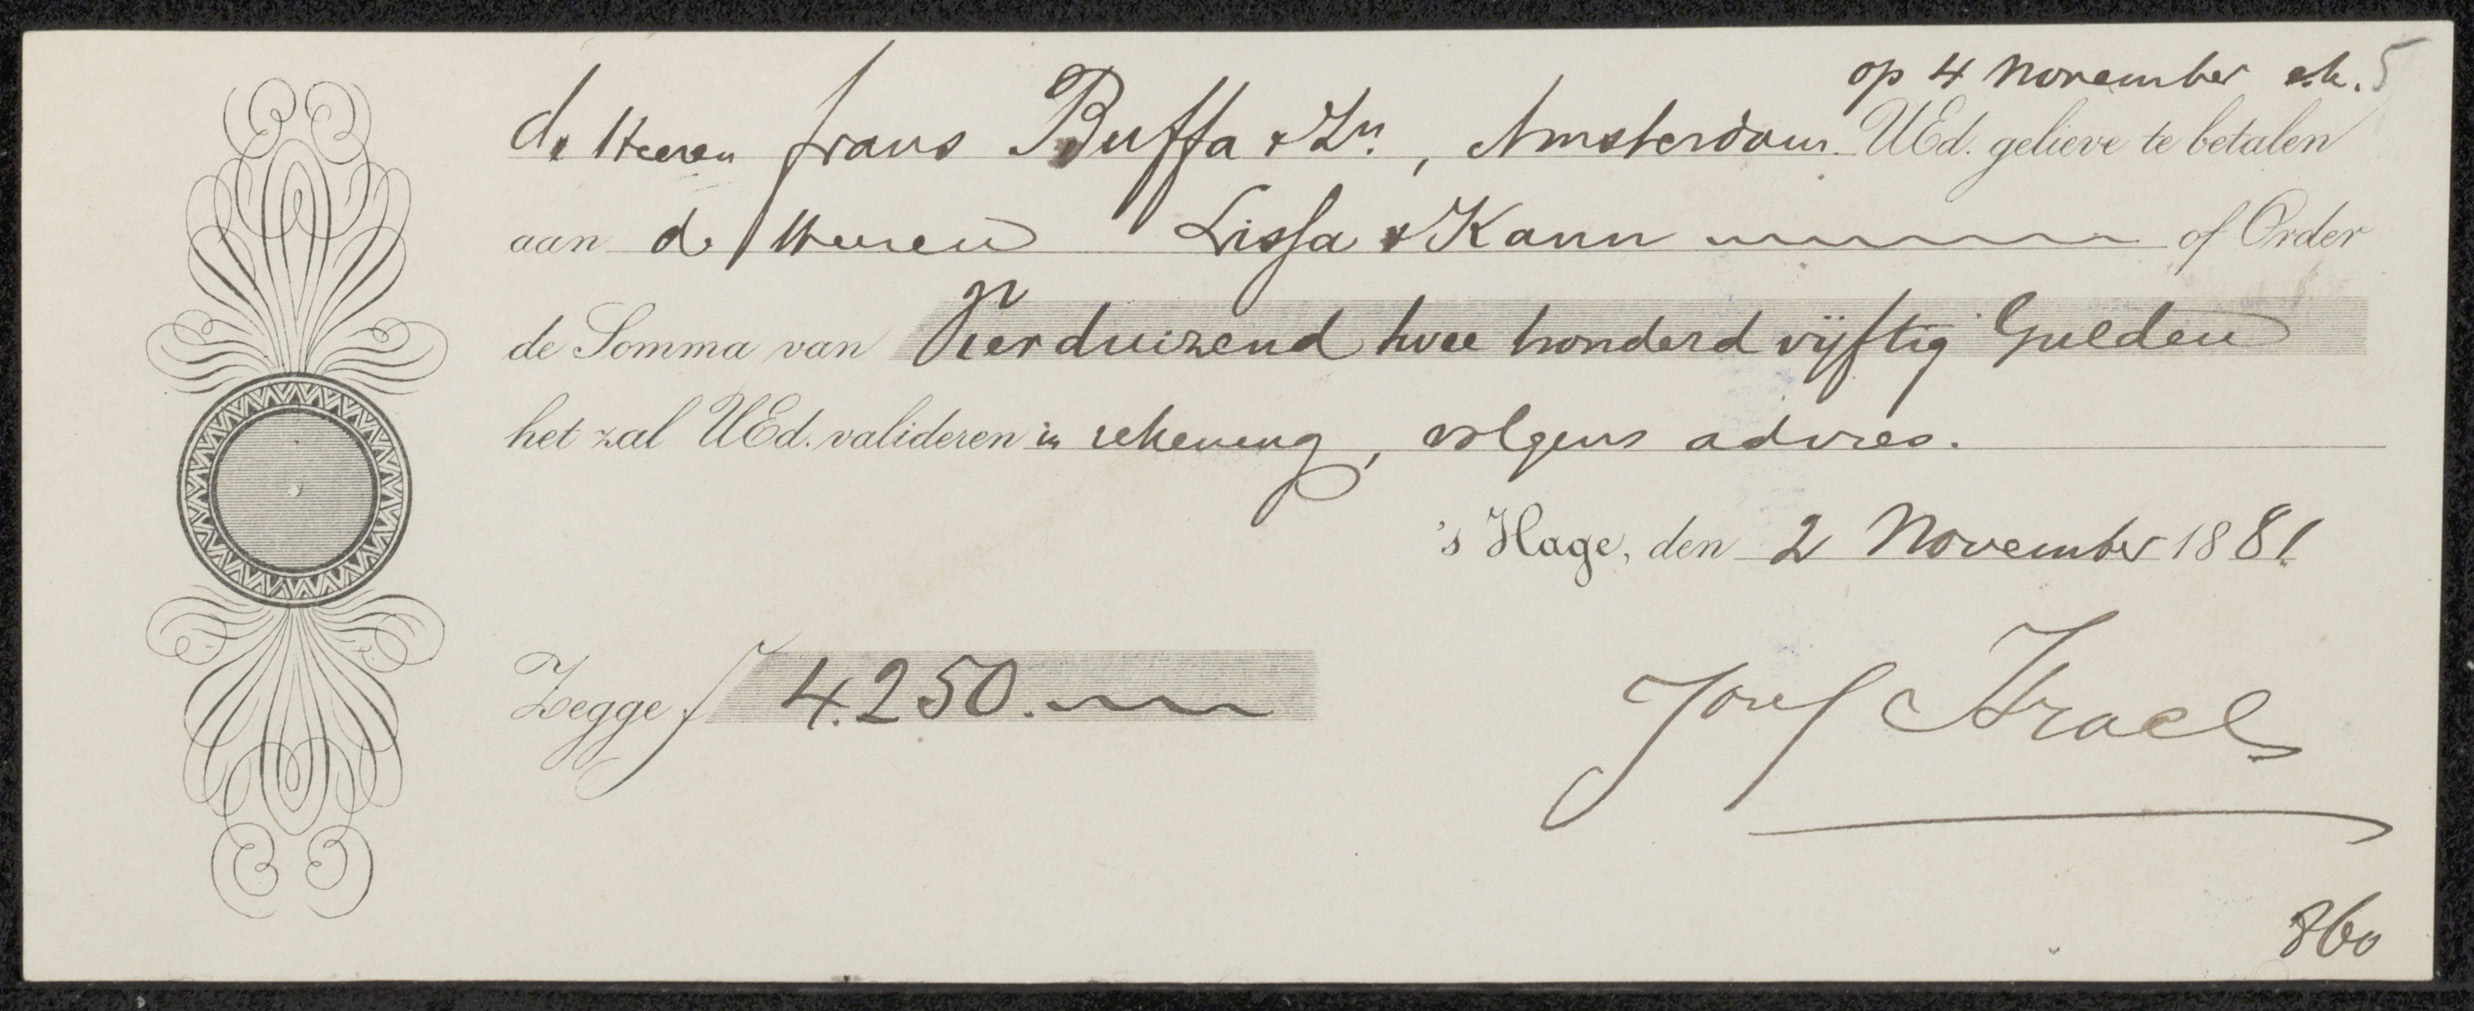 op 4 November e.k. 5
de Heeren Frans Buffa & Zn., Amsterdam. UEd. gelieve te betalen
aan de Heeren Lissa & Kann of Order
de Somma van Vierduizend twee honderd vijftig Gulden
het zal UEd. valideren in rekening, volgens advies.
's Hage, den 2 November 1881.
Zegge f 4.250.
Jozef Israels
860